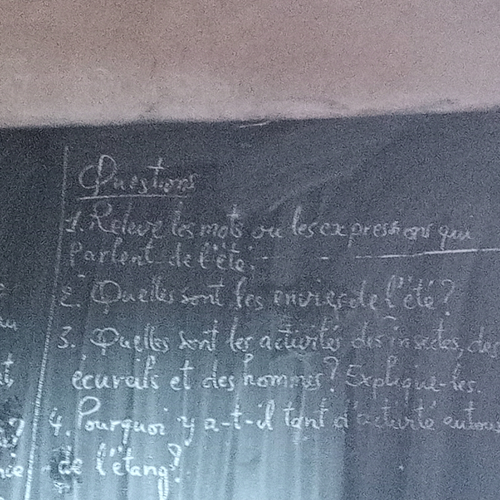 Questions
1. Relève les mots ou les expressions qui
parlent de l'été.
2. Quelles sont les envies de l'été ?
3. Quelles sont les activités des insectes, des
écureuils et des hommes ? Explique-les.
4. Pourquoi y a-t-il tant d'activité autour
de l'étang ?